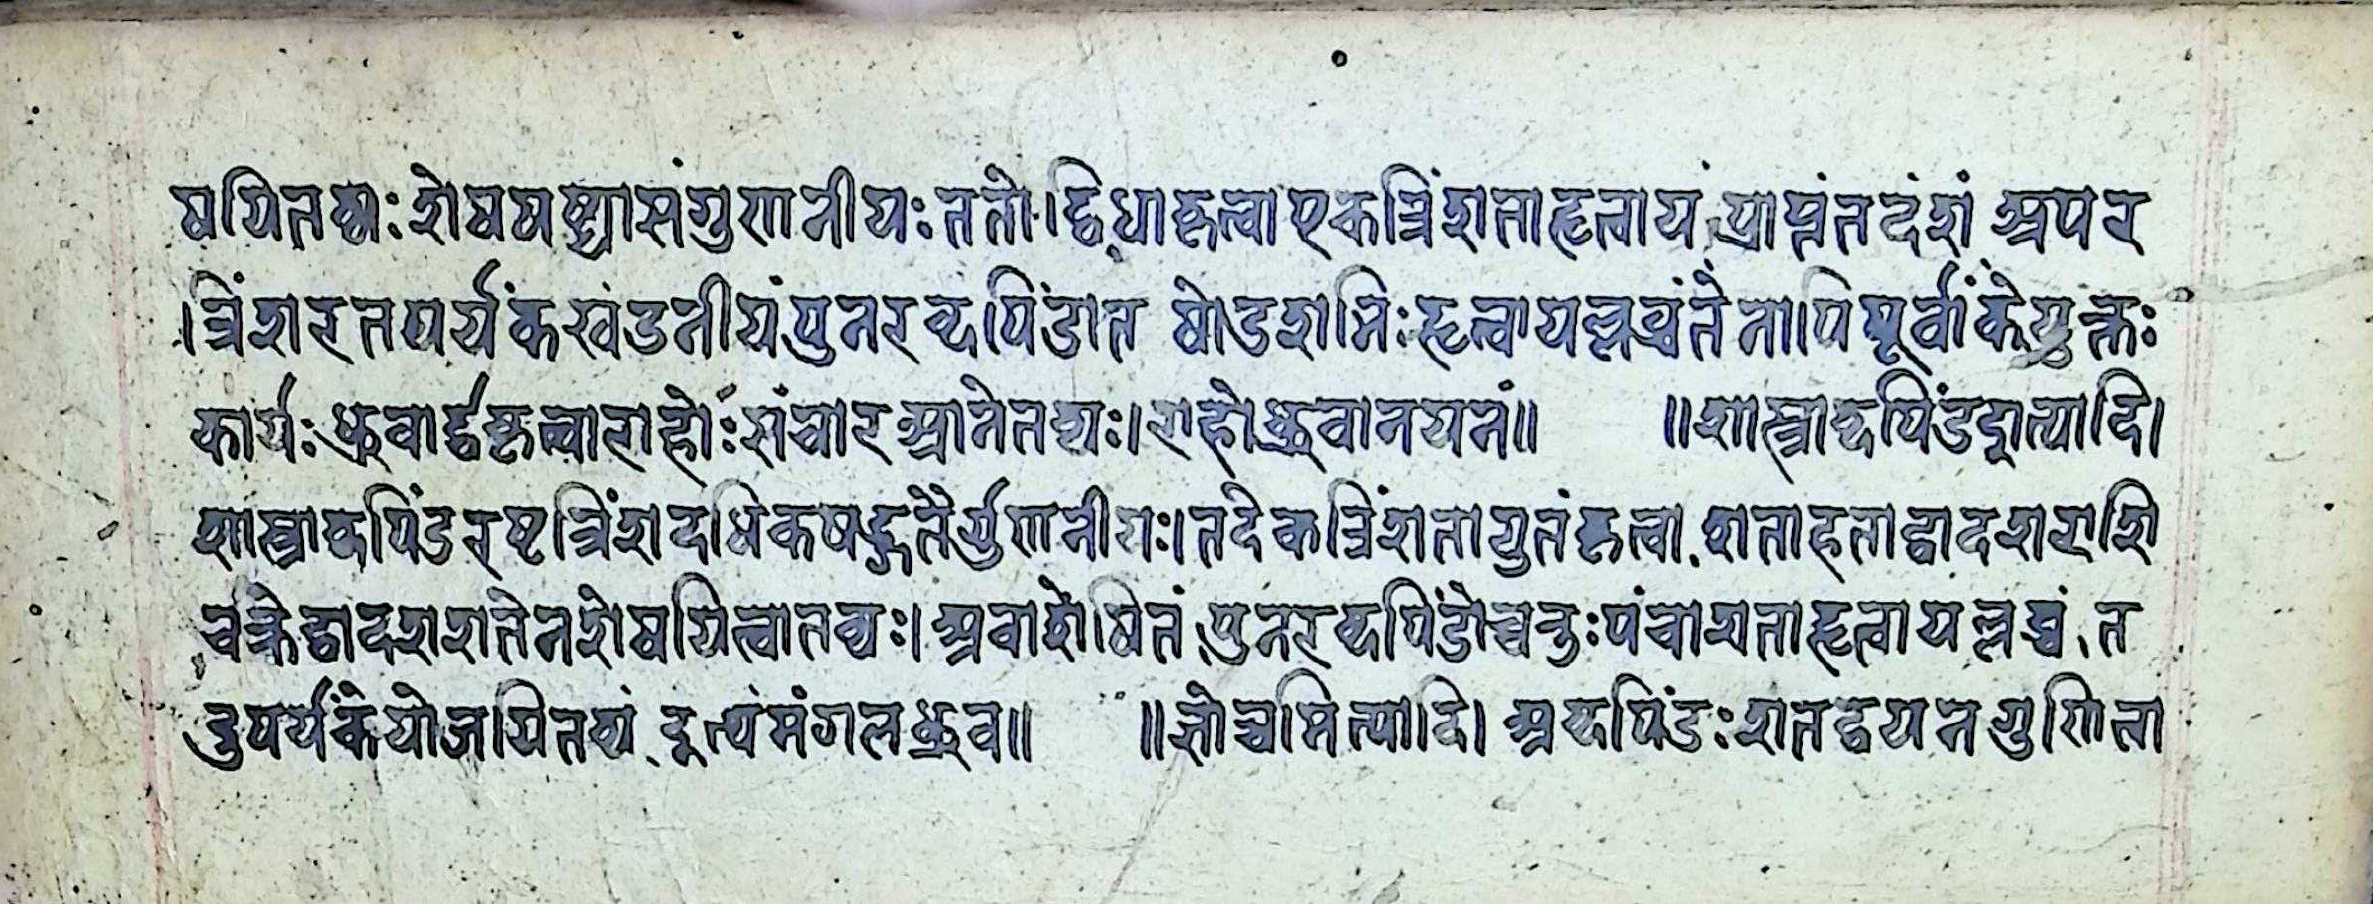 षयितव्यः शेषषष्ट्यासंगुणनीयः ततो द्विधाकृत्वा एकत्रिंशताहृत्वाय प्राप्तंतदंशं अपर
त्रिंशरतपर्यंकखंडनीयंपुनरब्दपिंडात षोडशभिः हृत्वायल्लब्धंतेनापिपूर्वांकेयुक्तः
कार्यः ध्रुवार्द्धकृत्वाराहोः संचारआनेतव्यः। राहोध्रुवानयनं॥ ॥शास्त्राब्दपिंडइत्यादि।
शास्त्राब्दपिंडरष्टत्रिंशदधिकषट्शतैर्गुणनीयः। तदेकत्रिंशतायुतंकृत्वा शताहताद्वादशराशि
चक्रेद्वादशशतेनशेषयित्वातव्यः। अवशेषितं पुनरब्दपिंडोच्चतुःपंचाशताहृत्वायल्लब्धं त
दुपर्यंकेयोजयितव्यं इत्थंमंगलध्रुव॥ ॥ज्ञोच्चमित्यादि। अब्दपिंडः शतद्वयनगुणिता